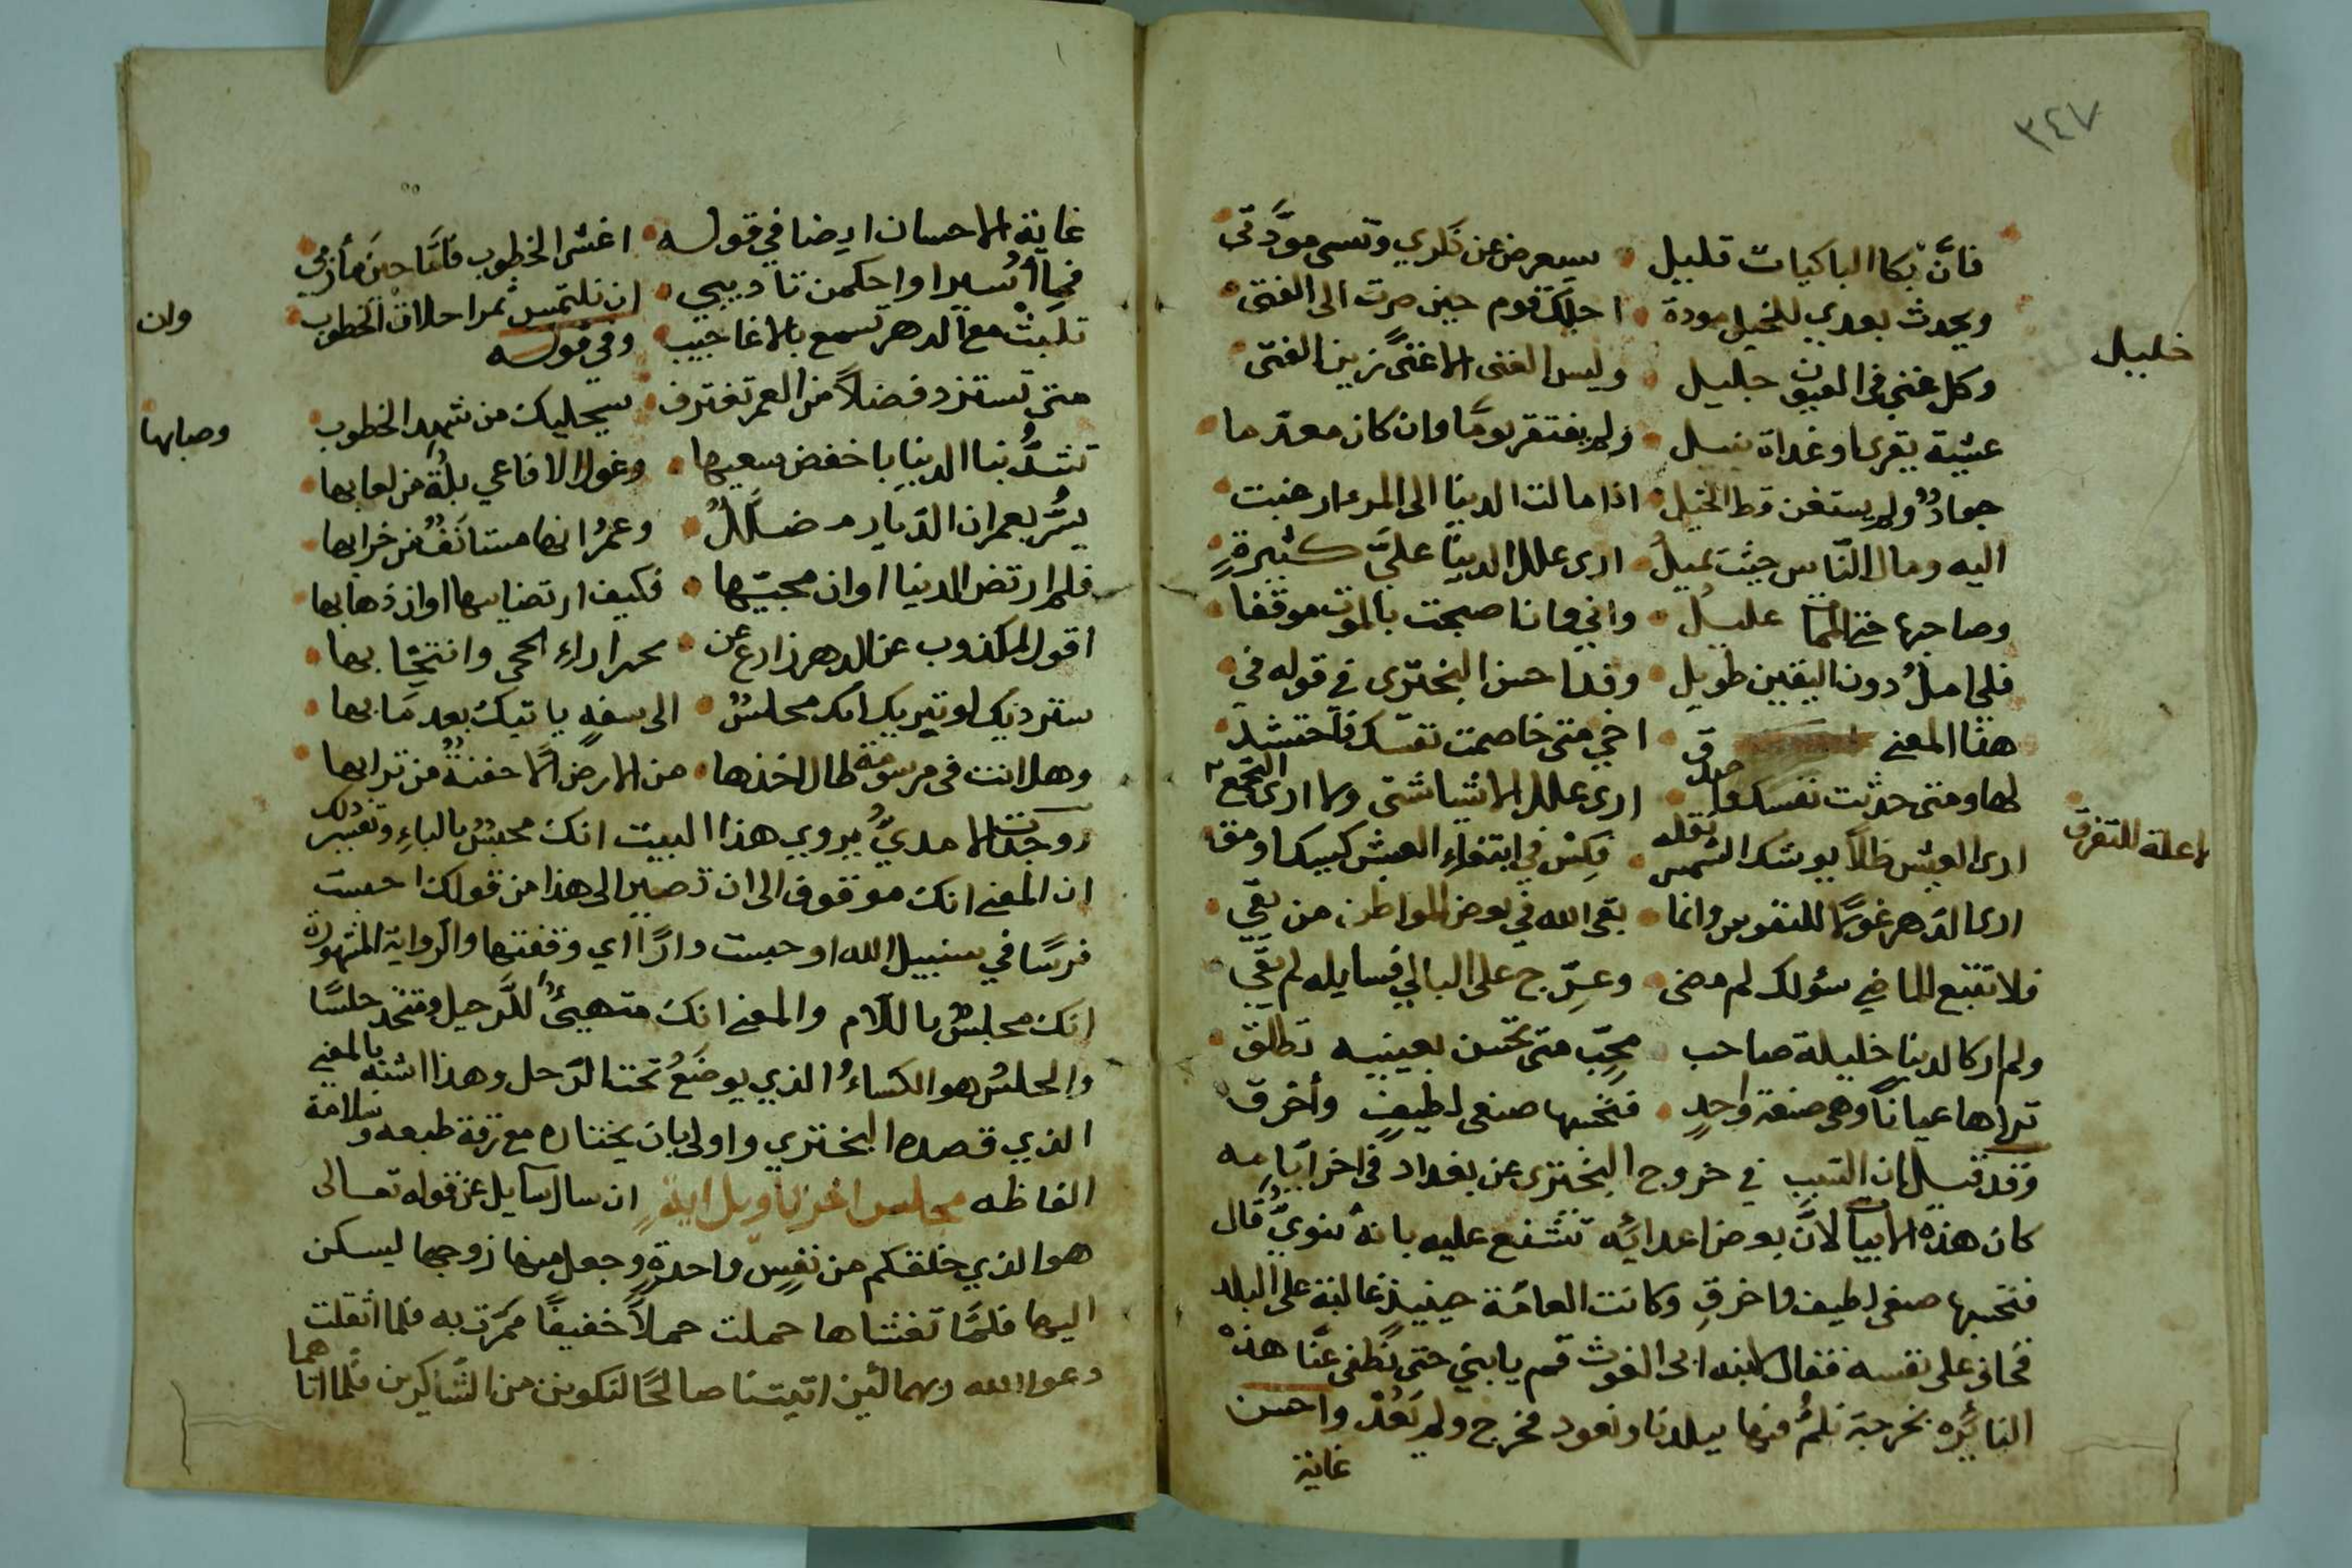 ٣٤٧
فانَّ بكا الباكيات قليل سيعرض عن ذكري وتنسى مودَّتي
ويحدث بعدي للخليل مودة اجلّك قوم حين صرت الى الغنى
خليل
وكل غني في العيون جليل وليس الغنى الا غنًى زين الفتى
عشية يقرى او غداة ينيل ولم يفتقر يومًا وان كان معدما
جوادٌ ولم يستغن قط بخيل اذا مالت الدنيا الى المرء ارغبت
اليه ومال الناس حيث تميل ارى علل الدنيا عليَّ كثيرةٍ
وصاحبها حتى الممات عليل واني وانا صبحت بالموت موقفا
فلي امل دون اليقين طويل وقد احسن البختري في قوله في
هذا المعنى اخي متى خاصمت نفسك فاحتشد
لها ومتى حدثت نفسك فاصدق ارى علل الاشيا شتى ولا ارى التجمع
لا علة للتفرق
ارى العيش ظلاً يوشك الشمس نقله فكِسْ في ابتغاء العيش كيسك او مق
ارى الدهر غولاً للنفوس وانما بقى الله في بعض المواطن من بقي
فلا تتبع الماضي سؤلك لم مضى وعرّج على الباقي فسايله لم بقي
ولم ار كالدنيا خليلة صاحب محِبّ متى تحسن بعينيه تطلق
تراها عيانًا وهي صنعة واحدٍ فتحسبها صنعى لطيفٍ وأخرق
وقد قيل ان السبب في خروج البختري عن بغداد في اخر ايامه
كان هذه الابيات لان بعض اعدائه شنع عليه بانه ثنوي قال
فتحسبها صنعى لطيف واخرقِ وكانت العامّة حينيذ غالبة على البلد
فخاف على نفسه فقال لابنه ابى الغوث قم يا بني حتى نُطفى عنّا هذه
النائرة بخرجة نلمُّ فيها ببلدنا ونعود فخرج ولم يَعُدْ واحسن
غاية
غاية الاحسان ايضا في قوله اغشى الخطوب فامَّا جين مأربي
فيما اُسيرا واحكمن تاديبي ان تلتمس تمرا خلاف الخطوب
وان
تلبثْ مع الدهر تسمع بالاعاجيب وفي قوله
متى تستزد فضلاً من العمر تغترف بسجليك من شهد الخطوب
وصابها
تشدُّ بنا الدنيا باخفض سعيها وغول الافاعي بلّةٌ من لعابها
يسُرُّ بعمران الديار مضلّلٌ وعمرُانها مستانَفٌ من خرابها
فلم ارتض الدنيا اوان مجيئها فكيف ارتضايها اوان ذهابها
اقول لمكذوب عن الدهر زاغ عن تحير اراء الحجى وانتخابها
سترديك او تبريك انك محلسٌ الى سفهٍ ياتيك بعد مابها
وهل انت في مرسومة طال اخذها من الارض الا حفنةٌ من ترابها
ووجدت الامديَّ يروي هذا البيت انك محبسٌ بالباءِ وتفسير ذلك
ان المعنى انك موقوف الى ان تصير الى هذا من قولك احبست
فرسًا في سبيل الله او حبست دارًا اي وقفتها والرواية المشهورة
انك محلسٌ باللام والمعنى انك متهيئٌ للرحيل ومتخذ حلسًا
والحلسُ هو الكساءُ الذي يوضَعُ تحت الرحل وهذا اشبه بالمعنى
الذي قصده البختري واولى بان يختاره مع رقة طبعه وسلامة
الفاظه مجلس اخر تاويل ايةٍ ان سال سايل عن قوله تعالى
هو الذي خلقكم من نفسٍ واحدةٍ وجعل منها زوجها ليسكن
اليها فلمّا تغشاها حملت حملاً خفيفًا فمرّت به فلما اثقلت
دعوا الله ربهما لئن اتيتنا صالحًا لنكونن من الشاكرين فلما اتاهما